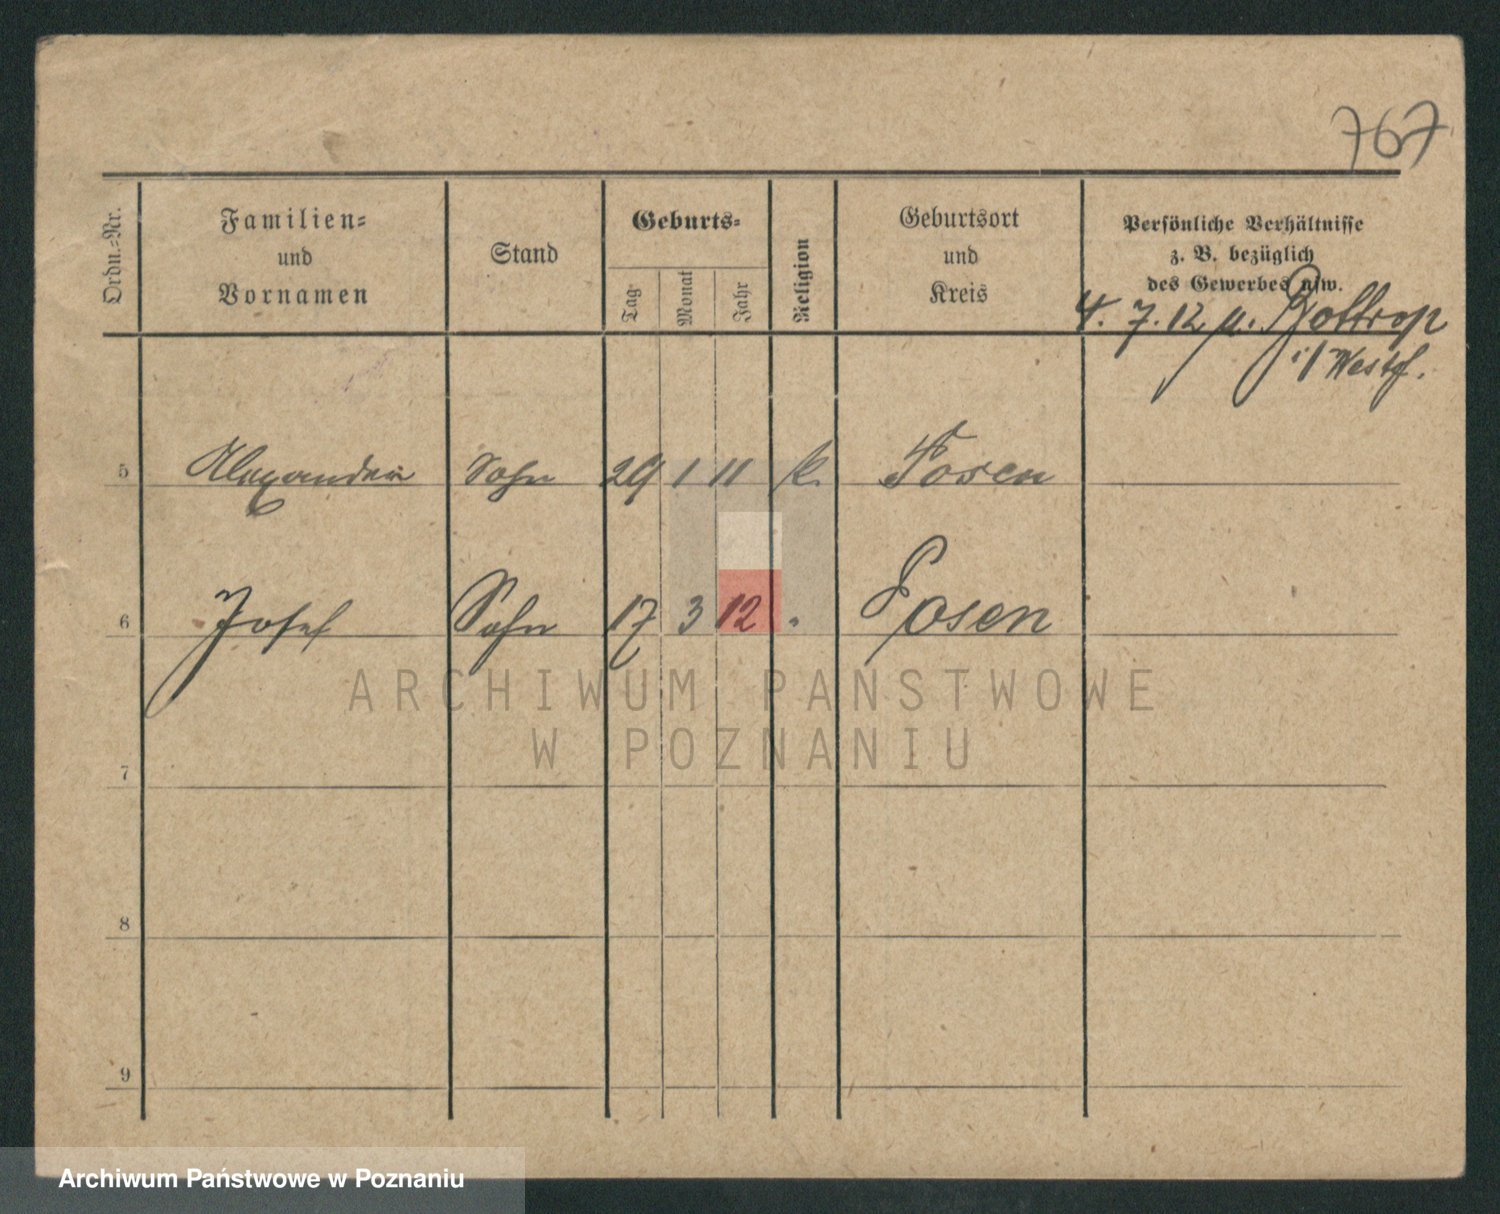 767
Ordn.-Nr.
Familien-
und
Vornamen
Stand
Geburts-
Tag
Monat
Jahr
Religion
Geburtsort
und
Kreis
Persönliche Verhältnisse
z. B. bezüglich
des Gewerbes usw.
4. 7. 12 n. Bottrop
i/Westf.
5 Alexander Sohn 29 1 11 k. Posen
6 Josef Sohn 17 3 12 . Posen
ARCHIWUM PAŃSTWOWE
W POZNANIU
7
8
9
Archiwum Państwowe w Poznaniu